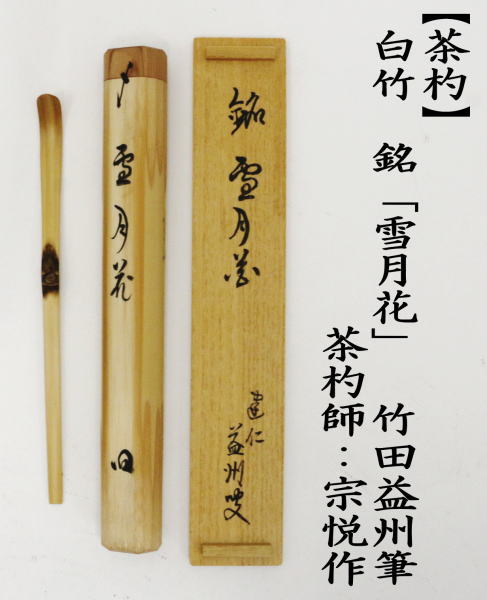 【茶杓】
白竹 銘「雪月花」 竹田益州筆
茶杓師：宗悦作
銘 雪月花
建仁 益州叟
〆 雪月花